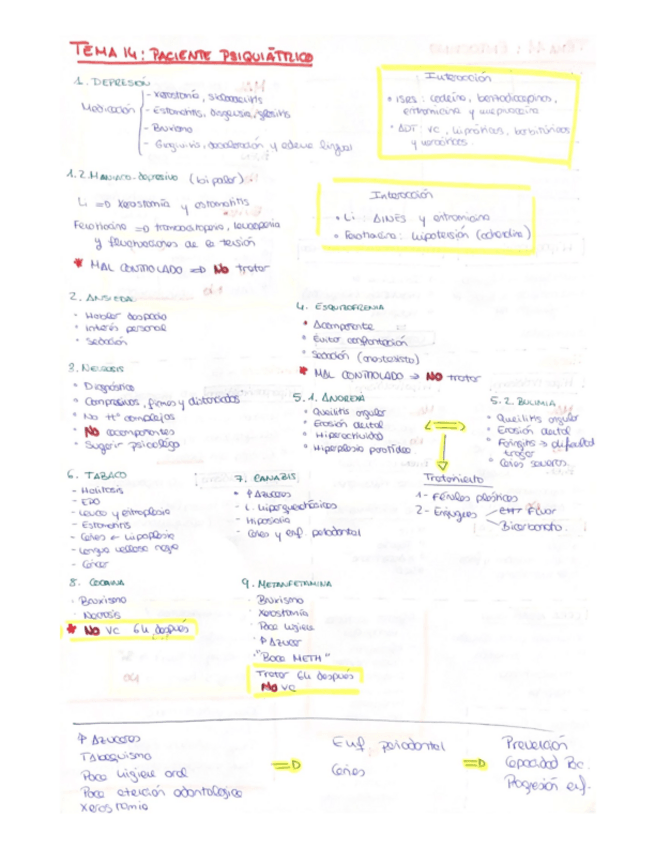 TEMA 14: PACIENTE PSIQUIÁTRICO
1. DEPRESIÓN
Medicación
- Xerostomía, sialoadenitis
- Estomatitis, disgeusia, glositis
- Bruxismo
- Gingivitis, decoloración y edema lingual
Interacción
• ISRS: codeína, benzodiacepinas, eritromicina y
• ADT: VC, hipnóticos, barbitúricos y
1.2. Maniaco-depresivo (bipolar)
Li => Xerostomía y estomatitis
=> trombocitopenia, leucopenia y fluctuaciones de la tensión
* MAL CONTROLADO => NO tratar
Interacción
• Li: AINES y eritromicina
• : hipotensión (adrenalina)
2. ANSIEDA
• Hablar despacio
• Interés personal
• Sedación
3. NEUROSIS
• Diagnóstico
• Comprensivos, firmes y distanciados
• No tto complejos
• NO acompañantes
• Sugerir psicólogo
4. ESQUIZOFRENIA
• Acompañante
• Evitar confrontación
• Sedación (anestesista)
* MAL CONTROLADO → NO tratar
5.1. ANOREXIA
• Queilitis angular
• Erosión dental
• Hiperactividad
• Hiperplasia parótidas
5.2. BULIMIA
• Queilitis angular
• Erosión dental
• Faringitis → dificultad tragar
• Caries severas
Tratamiento
1- Férulas plásticas
2- Enjuagues
Flúor
Bicarbonato
6. TABACO
- Halitosis
- EPO
- Leuco y eritroplasia
- Estomatitis
- Caries ← hipoplasia
- Lengua vellosa negra
- Cáncer
7. CANABIS
• ↑ AZUCARES
- L. hiperqueratósicas
- Hiposialia
- Caries y enf. periodontal
8. COCAINA
• Bruxismo
• Necrosis
* NO VC 6h después
9. METANFETAMINA
• Bruxismo
• Xerostomía
• Poca higiene
• ↑ AZUCAR
• "BOCA METH"
Tratar 6h después
NO VC
↑ AZUCARES
Tabaquismo
Poca higiene oral
Poca atención odontológica
Xerostomia
=>
Enf periodontal
Caries
=>
Prevención
Capacidad Pac.
Progresión enf.